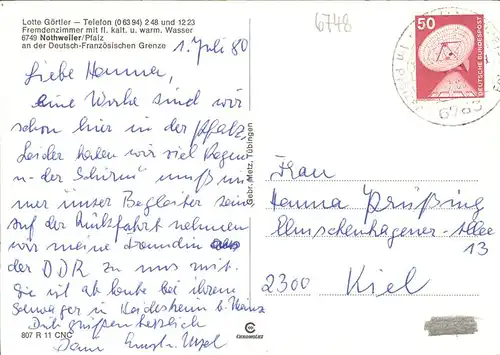 Lotte Görtler – Telefon (0 63 94) 2 48 und 12 23
Fremdenzimmer mit fl. kalt. u. warm. Wasser
6749 Nothweiler/Pfalz
an der Deutsch-Französischen Grenze
1. Juli 80
Liebe Hanna,
eine Woche sind wir
schon hier in der Pfalz.
Leider haben wir viel Regen
u. der Schirm muß im
mer unser Begleiter sein
auf der Rückfahrt nehmen
wir meine Freundin aus
der DDR zu uns mit.
Sie ist ab heute bei ihrem
Schwager in Heidesheim b. Mainz
grüßen herzlich
Dein
807 R 11 CNC
Gebr. Metz, Tübingen
CHROMOLUX
6748
50
DEUTSCHE BUNDESPOST
Frau
Hanna Prüßing
Elmschenhagener-Allee
13
2300 Kiel